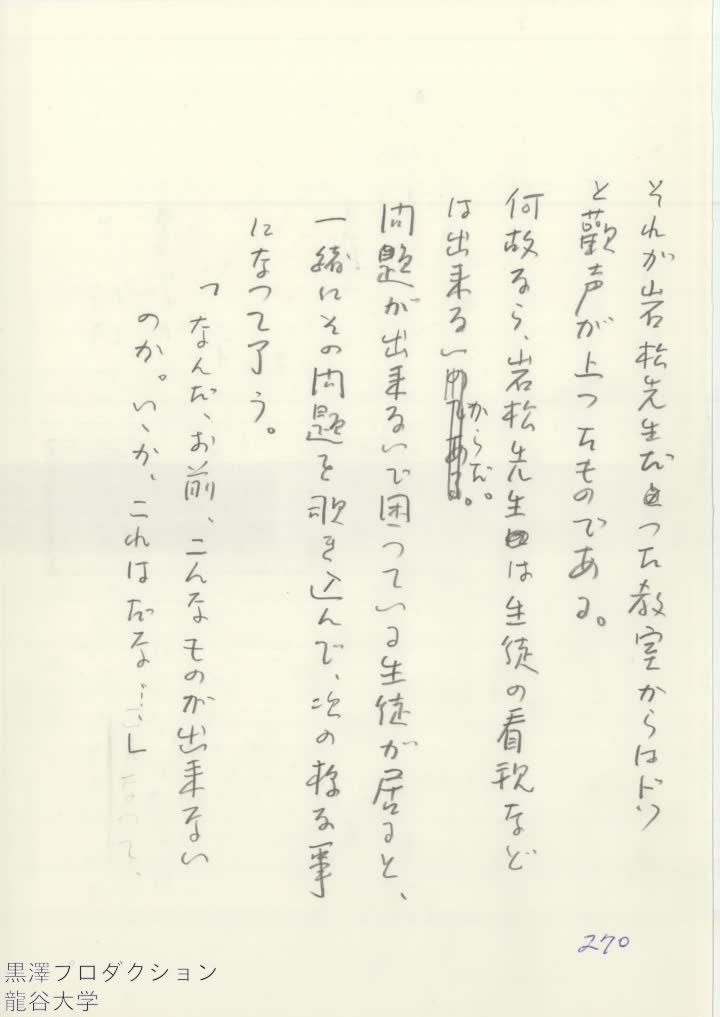 それが岩松先生だった教室からはドッ
と歡声が上ったものである。
何故なら、岩松先生は生徒の看視など
は出来ないからだ。
問題が出来ないで困っている生徒が居ると、
一緒にその問題を覗き込んで、次の様な事
になって了う。
「なんだ、お前、こんなものが出来ない
のか。いゝか、これはだな…」
270
黒澤プロダクション
龍谷大学